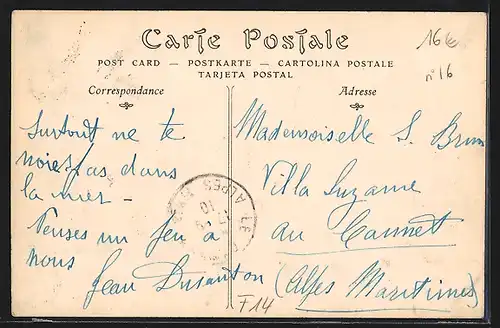 Carte Postale
POST CARD — POSTKARTE — CARTOLINA POSTALE
TARJETA POSTAL
Correspondance
Adresse
16€
n°16
Surtout ne te
noies pas dans
la mer –
Penses un peu à
nous
Jean Dusanton
Mademoiselle S. Brun
Villa Suzanne
au Cannet
(Alpes Maritimes)
LE
ALPES
10
F14